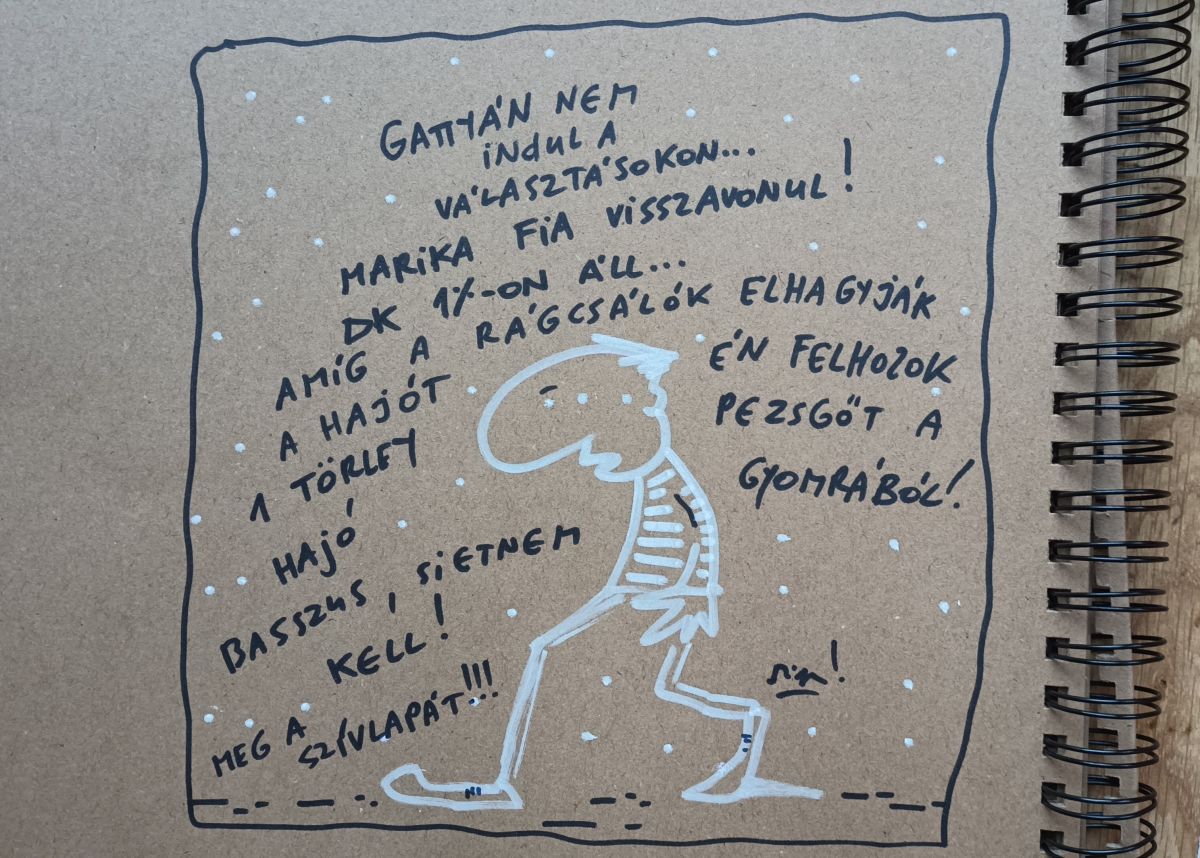 GATTYÁN NEM
INDUL A
VÁLASZTÁSOKON...
MARIKA FIA VISSZAVONUL!
DK 1%-ON ÁLL...
AMÍG A RÁGCSÁLÓK ELHAGYJÁK
A HAJÓT
ÉN FELHOZOK
1 TÖRLEY
PEZSGŐT A
HAJÓ
GYOMRÁBÓL!
BASSZUS, SIETNEM
KELL!
MEG A
SZÍVLAPÁT!!!